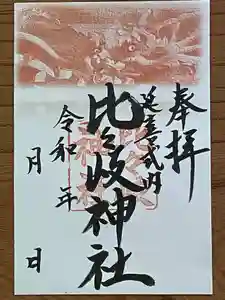 奉拝
延喜式内
比々岐神社
令和 年
月 日